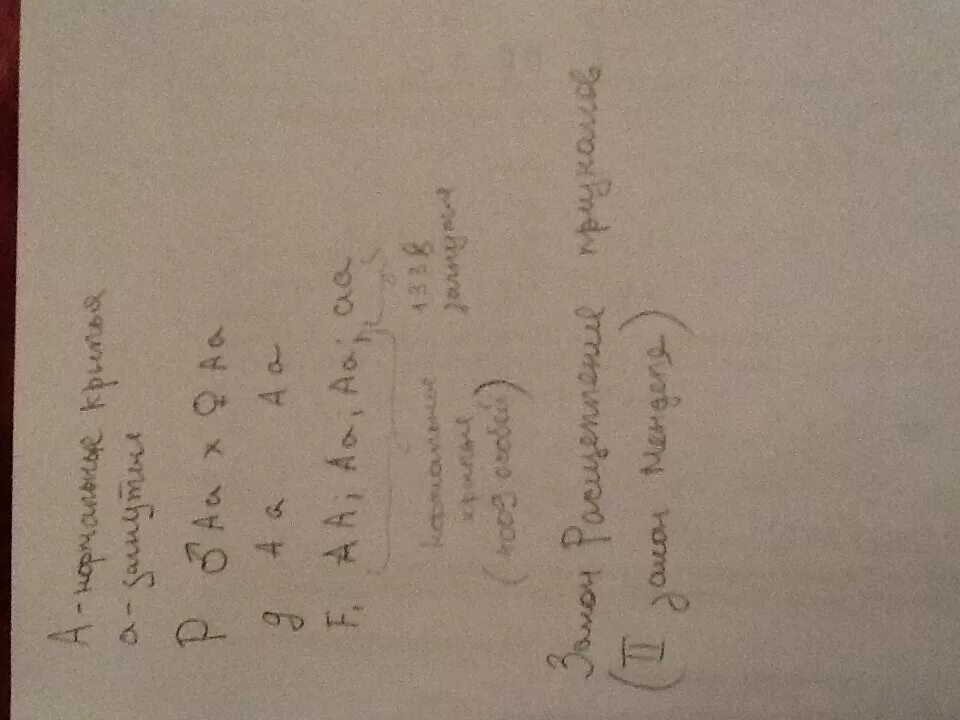 А - нормальные крылья
а - загнутые
P ♂ Aa x ♀ Aa
g A a A a
F₁ AA; Aa; Aa; aa
нормальные крылья (4009 особей)
1338 загнутые
Закон Расщепление признаков
(II закон Менделя)